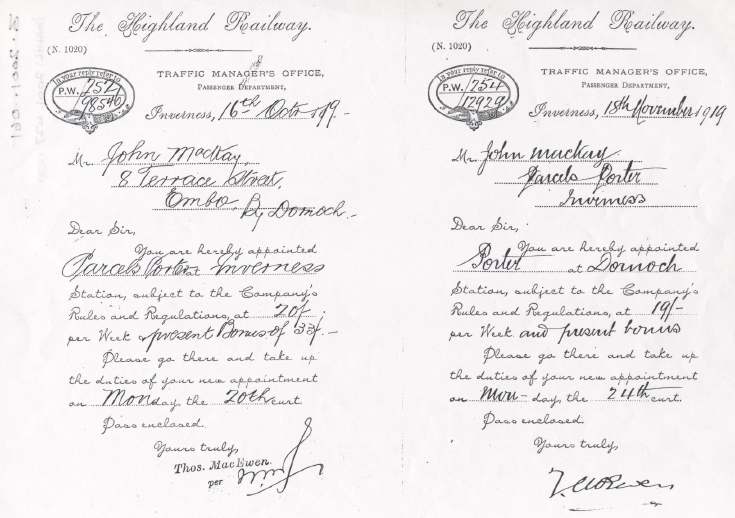 The Highland Railway.
(N. 1020)
In your reply refer to
P.W. 252
98540
TRAFFIC MANAGER'S OFFICE,
PASSENGER DEPARTMENT,
Inverness, 16th Octr 1919.-
Mr John Mackay,
8 Terrace Street,
Embo
By Dornoch.-
Dear Sir,
You are hereby appointed
Parcels Porter Inverness
Station, subject to the Company's
Rules and Regulations, at 20/-
per Week & present Bonus of 33/-
Please go there and take up
the duties of your new appointment
on Monday, the 20th curt
Pass enclosed.
Yours truly,
Thos. MacEwen.
per
The Highland Railway.
(N. 1020)
In your reply refer to
P.W. 254
12929
TRAFFIC MANAGER'S OFFICE,
PASSENGER DEPARTMENT,
Inverness, 18th November 1919
Mr John Mackay
Parcels Porter
Inverness
Dear Sir,
You are hereby appointed
Porter at Dornoch
Station, subject to the Company's
Rules and Regulations, at 19/-
per Week and present bonus
Please go there and take up
the duties of your new appointment
on Mon- day, the 24th curt.
Pass enclosed.
Yours truly,
T. McEwen